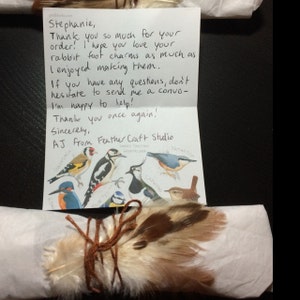 Stephanie,
Thank you so much for your
order! I hope you love your
rabbit foot charms as much as
I enjoyed making them.
If you have any questions, don't
hesitate to send me a convo–
I'm happy to help!
Thank you once again!
Sincerely,
AJ from FeatherCraft Studio